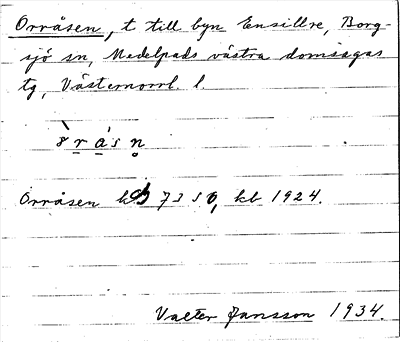 Orråsen, t till byn Ensillre, Borg-
sjö sn, Medelpads västra domsagas
tg, Västernorrl. l.
Orråsen kb 1924.
Valter Jansson 1934.